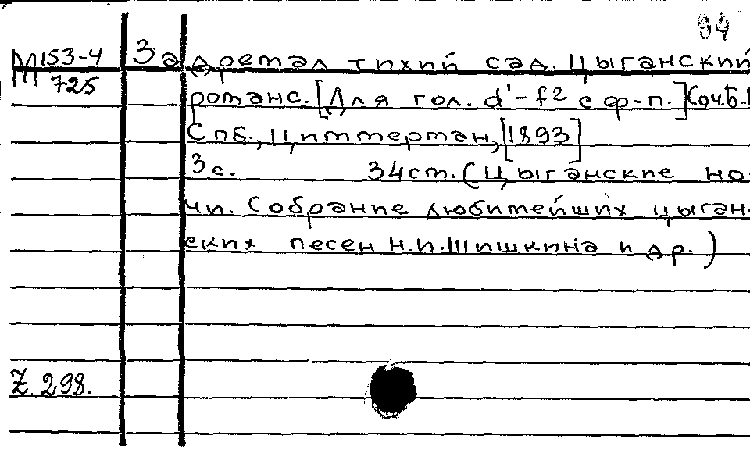 94
М 153-4 Задремал тихий сад. Цыганский
725 романс. [Для гол. d'-f2 с ф-п.] Соч. Б.
СПб., Циммерман, [1893]
3с. 34см. (Цыганские но-
чи. Собрание любимейших цыган-
ских песен Н.И.Шишкина и др.)
Z. 298.